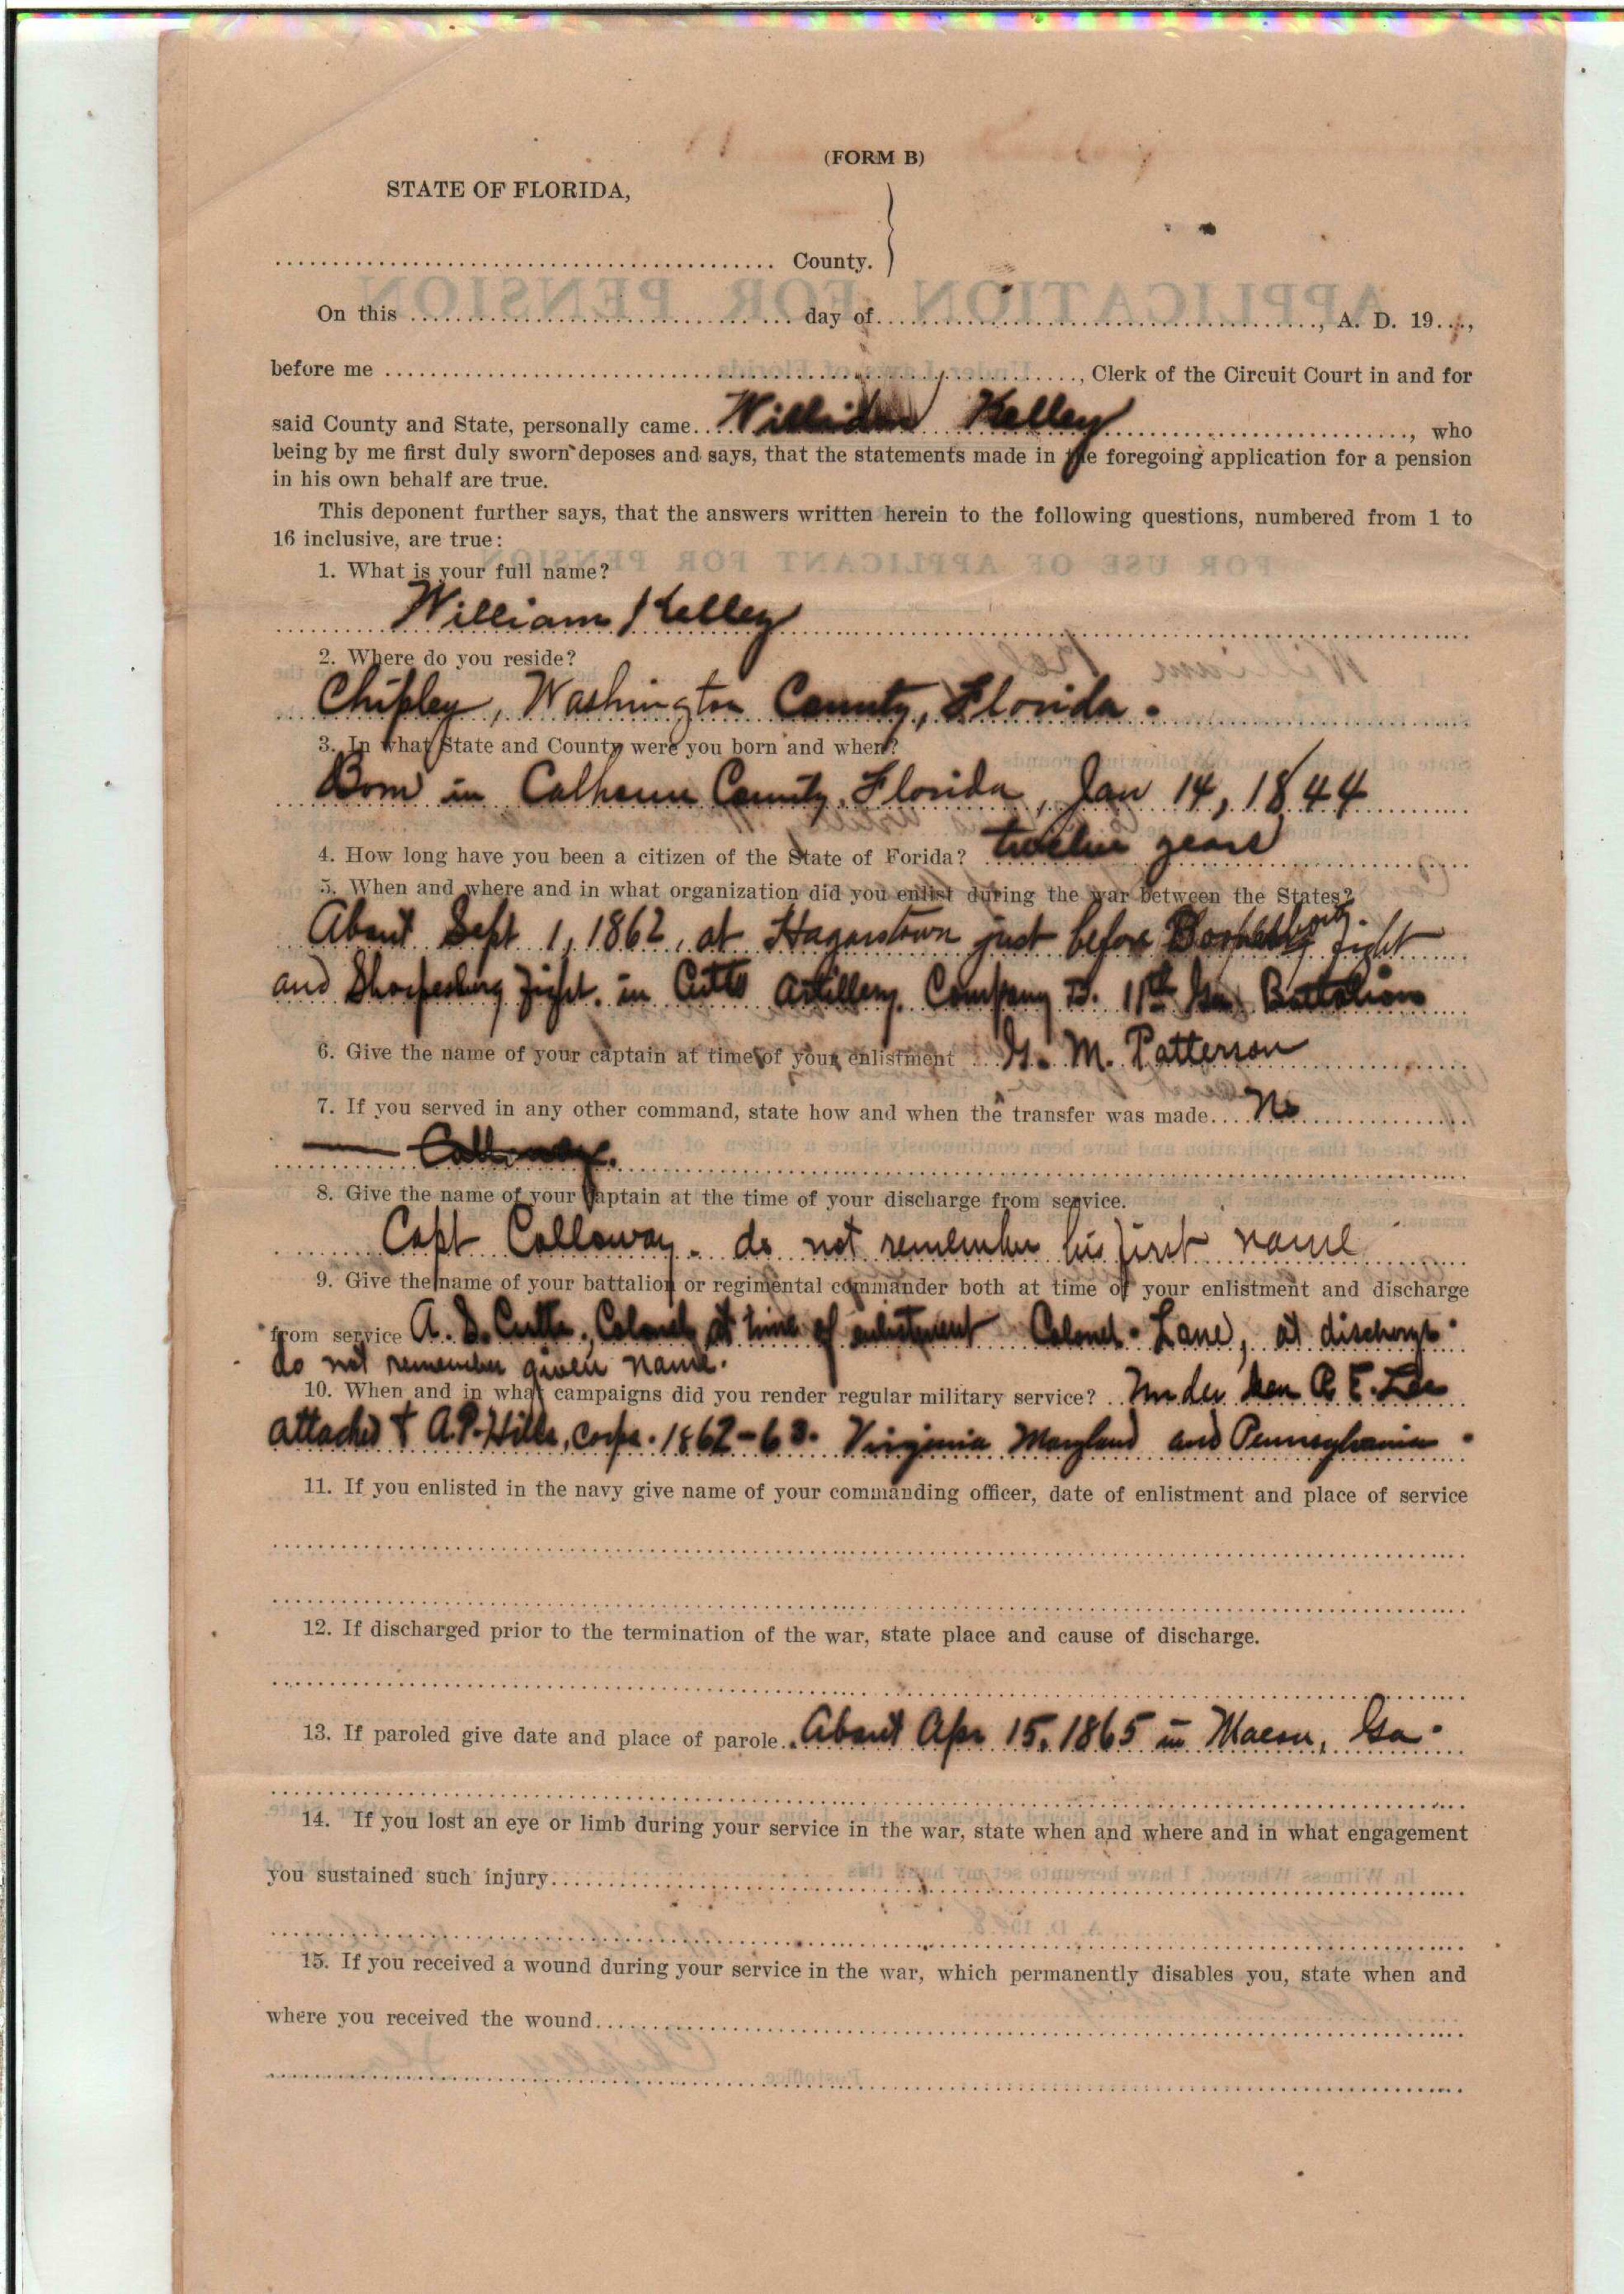 (FORM B)
STATE OF FLORIDA,
County.
On this day of , A. D. 19 ,
before me , Clerk of the Circuit Court in and for
said County and State, personally came William Kelley , who
being by me first duly sworn deposes and says, that the statements made in the foregoing application for a pension
in his own behalf are true.
This deponent further says, that the answers written herein to the following questions, numbered from 1 to
16 inclusive, are true:
1. What is your full name?
William Kelley
2. Where do you reside?
Chipley, Washington County, Florida.
3. In what State and County were you born and when?
Born in Calhoun County, Florida, Jan 14, 1844
4. How long have you been a citizen of the State of Forida? twelve years
5. When and where and in what organization did you enlist during the war between the States?
About Sept 1, 1862, at Hagerstown just before fight
and Sharpesburg fight. in Cutts Artillery. Company D. 11th Ga. Battalion
6. Give the name of your captain at time of your enlistment G. M. Patterson
7. If you served in any other command, state how and when the transfer was made. No
8. Give the name of your Captain at the time of your discharge from service.
Capt Calloway. do not remember his first name
9. Give the name of your battalion or regimental commander both at time of your enlistment and discharge
from service A. S. Cutts, Colonel at time of enlistment Colonel Lane, at discharge.
do not remember given name.
10. When and in what campaigns did you render regular military service? Under Gen R. E. Lee
attached to A.P. Hills, Corps. 1862-63. Virginia Maryland and Pennsylvania.
11. If you enlisted in the navy give name of your commanding officer, date of enlistment and place of service
12. If discharged prior to the termination of the war, state place and cause of discharge.
13. If paroled give date and place of parole. About Apr 15, 1865 in Macon, Ga.
14. If you lost an eye or limb during your service in the war, state when and where and in what engagement
you sustained such injury
15. If you received a wound during your service in the war, which permanently disables you, state when and
where you received the wound